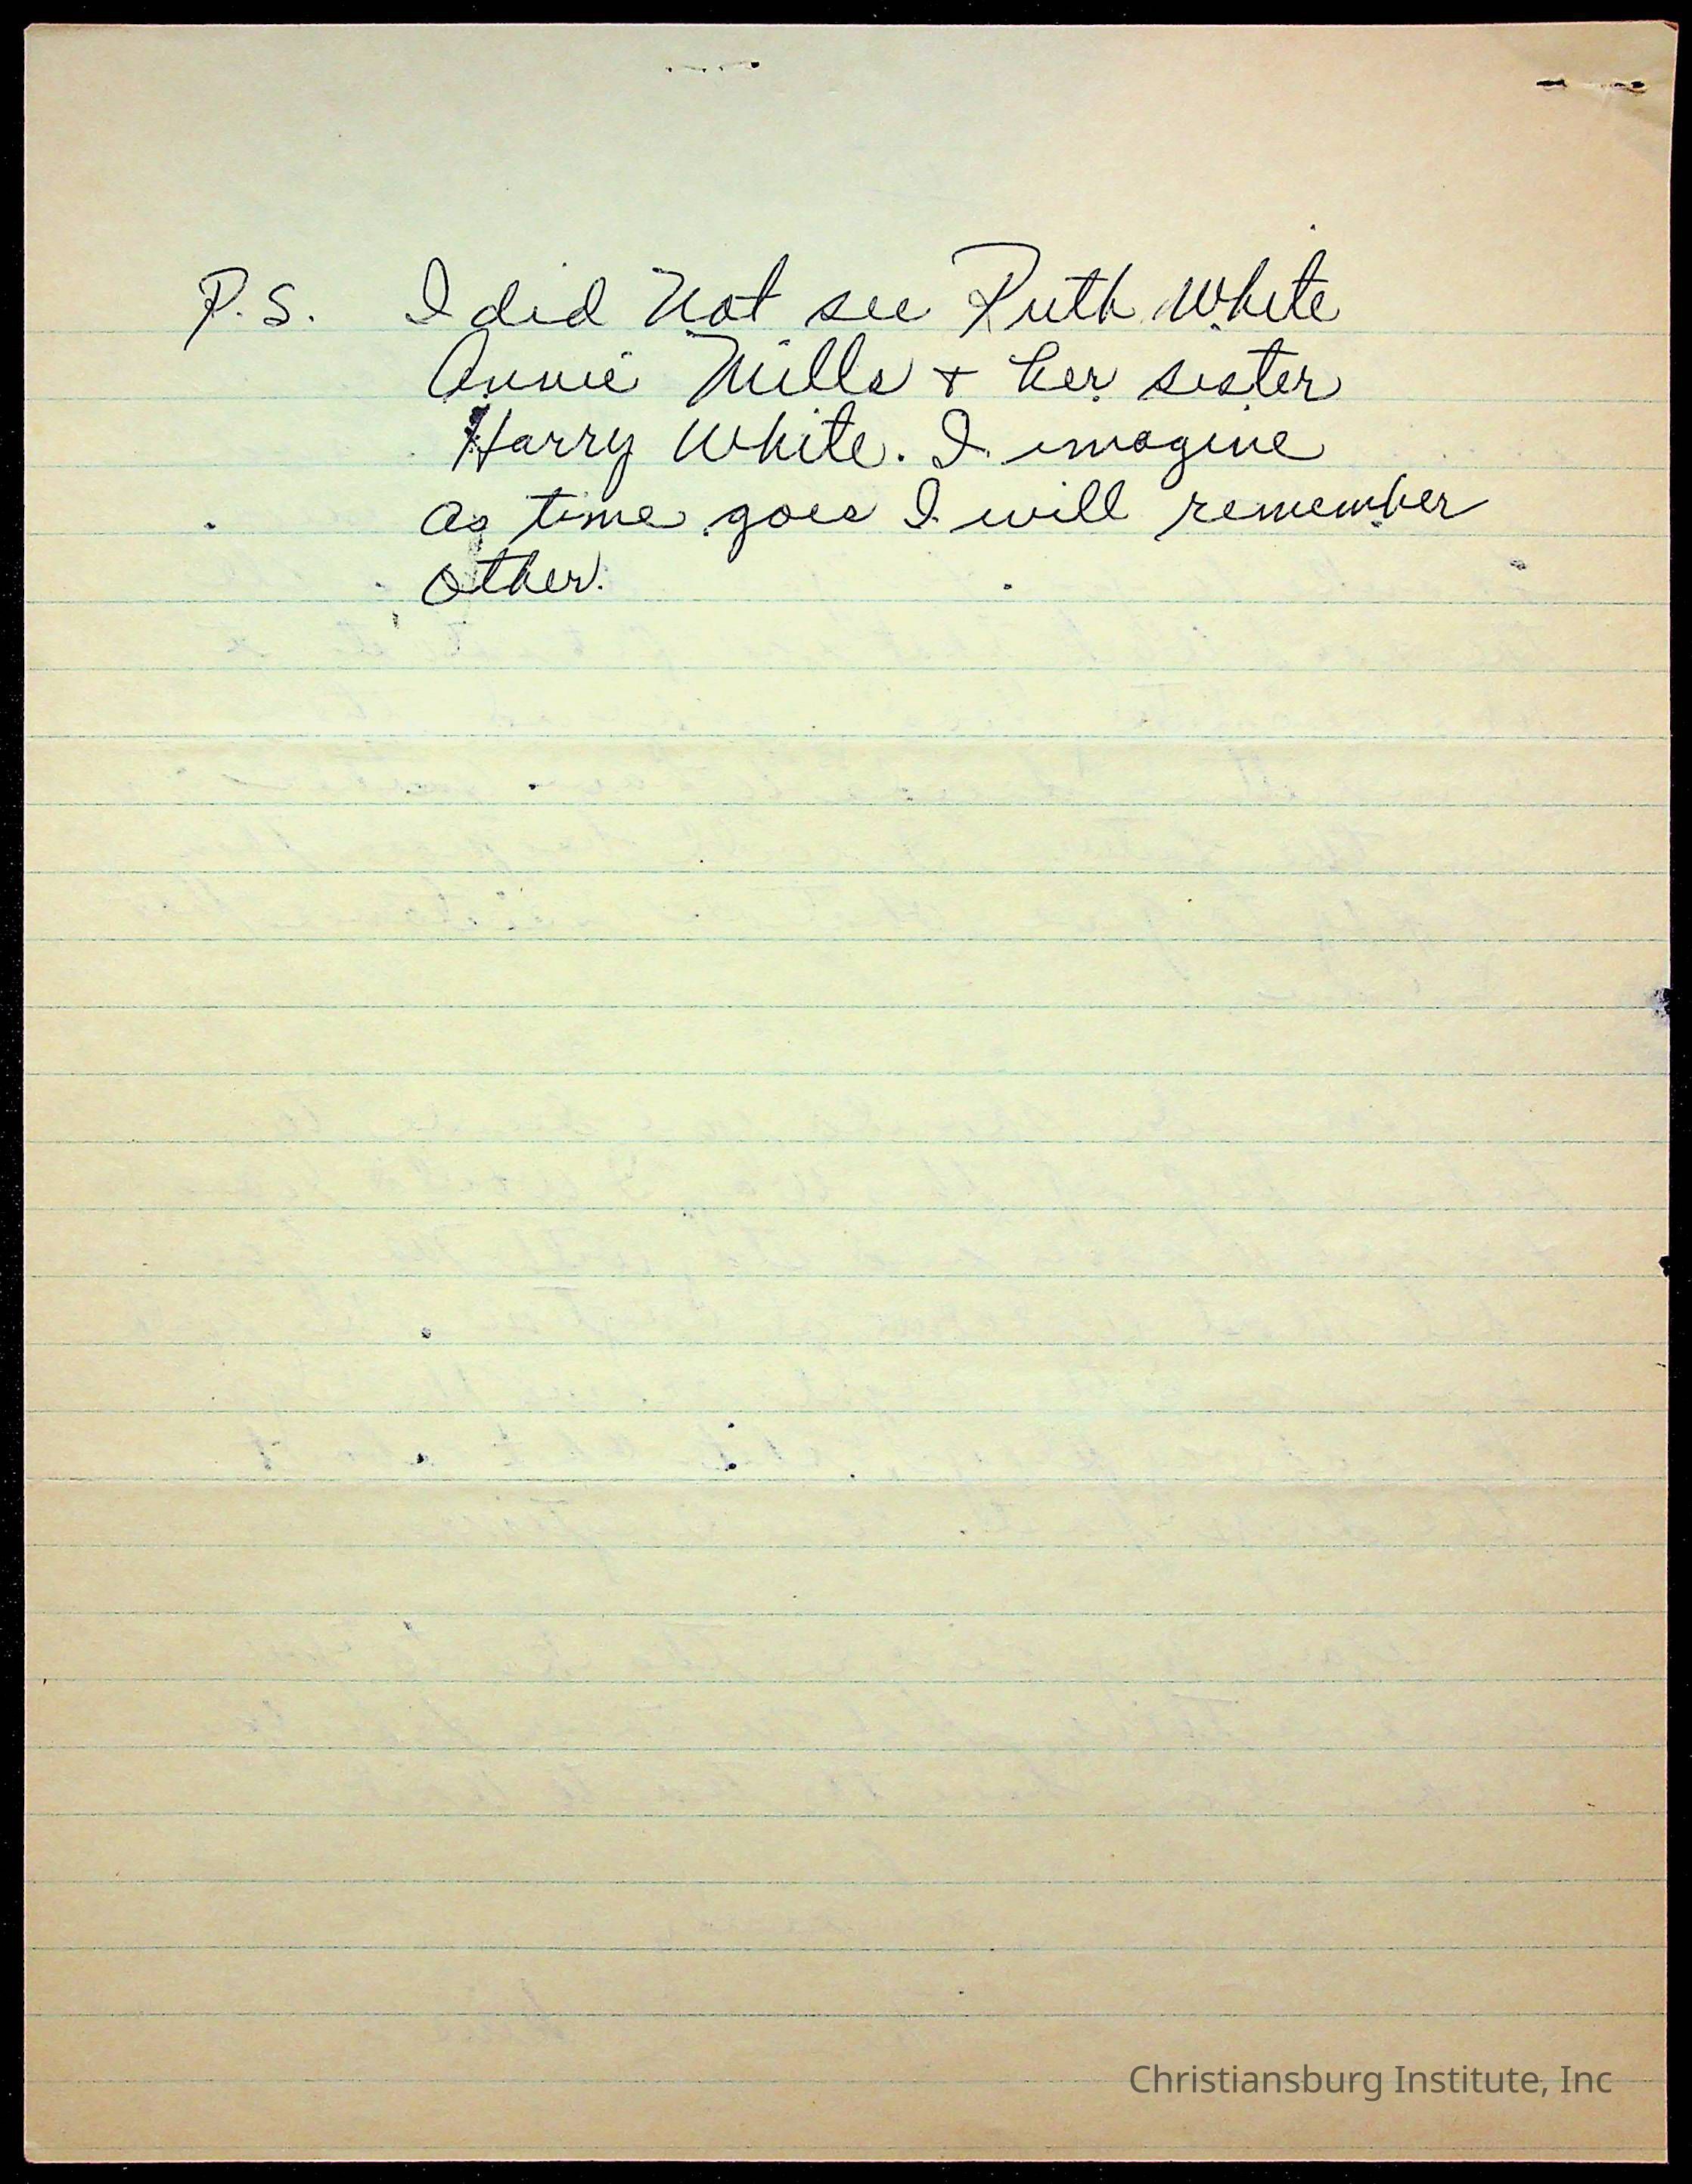 P.S. I did Not see Ruth White
Annie Mills + her sister
Harry White. I imagine
as time goes I will remember
other.
Christiansburg Institute, Inc